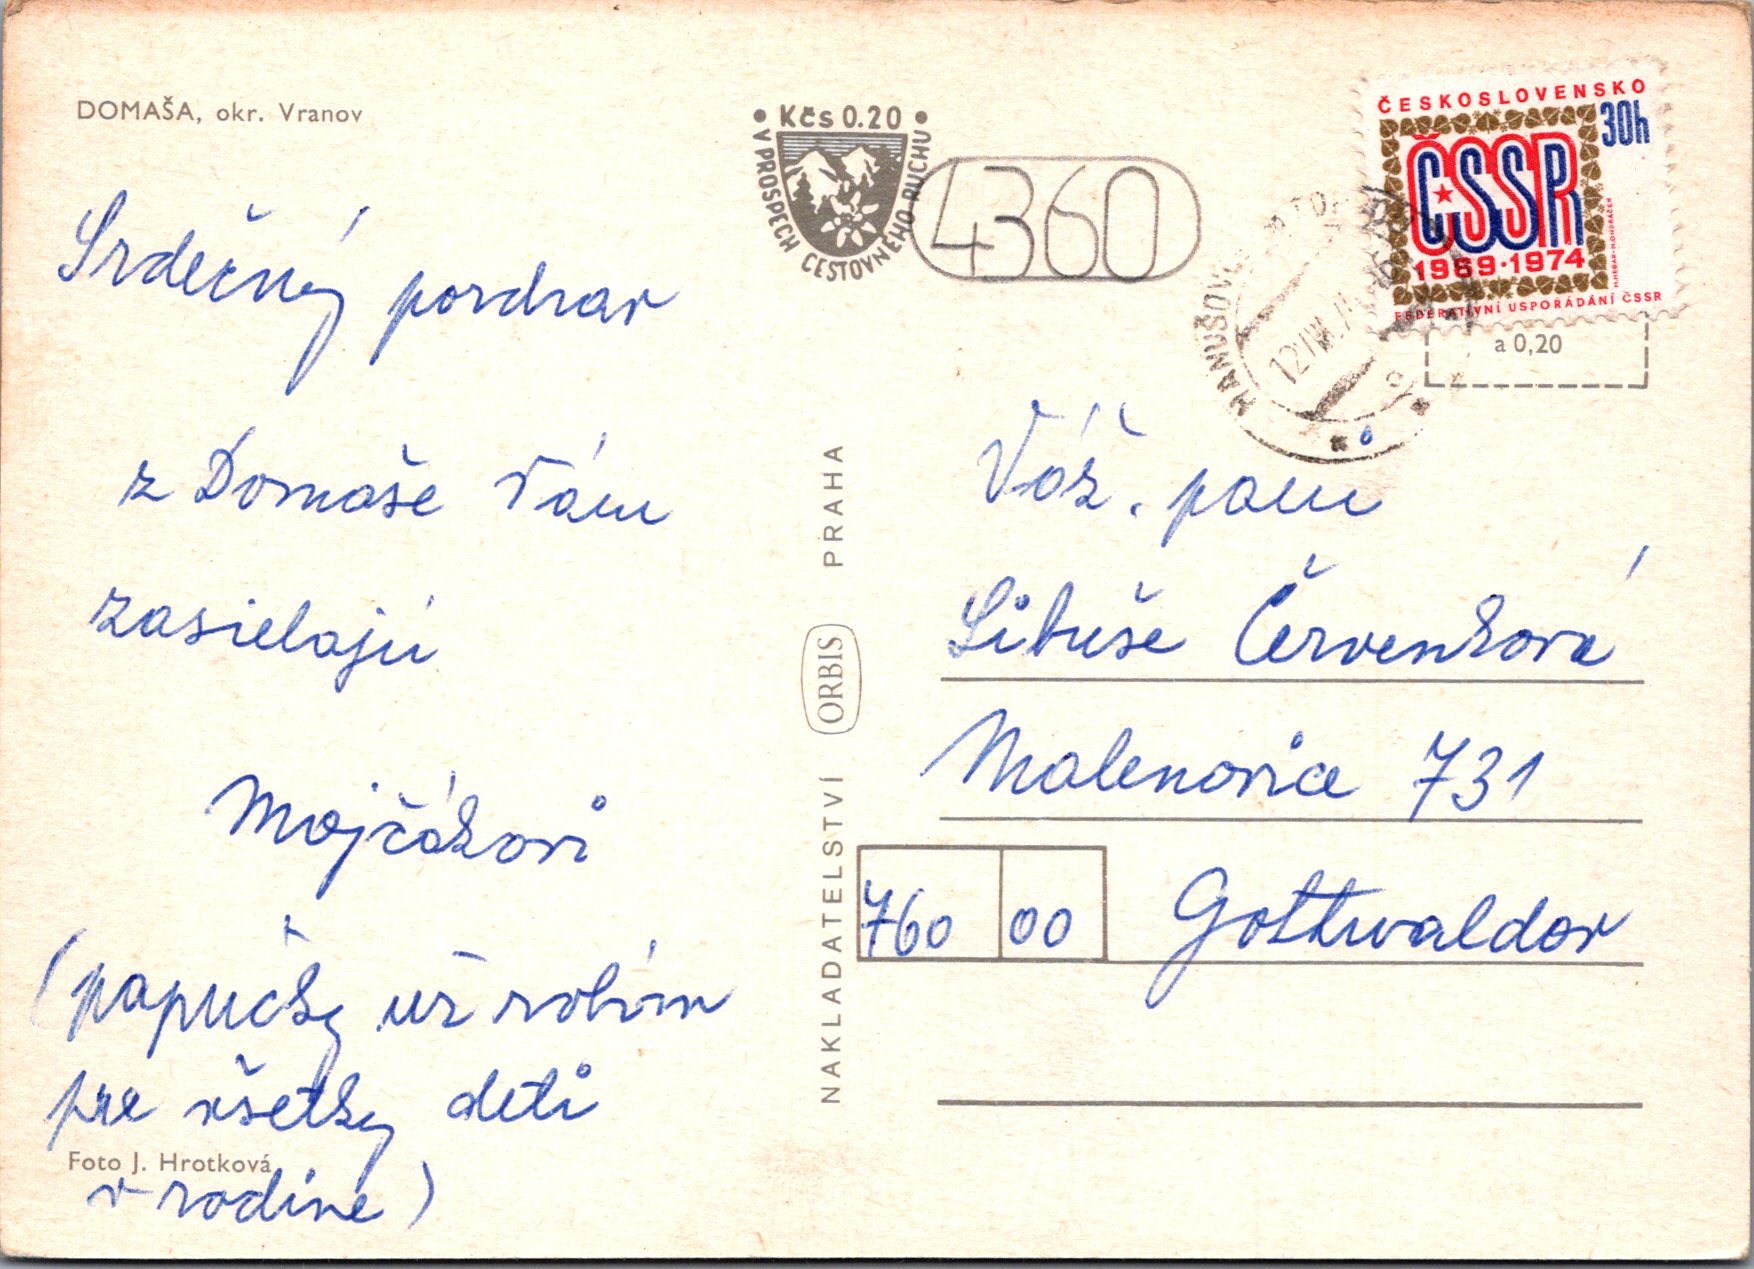 DOMAŠA, okr. Vranov
Srdečný pozdrav
z Domaše Vám
zasielajú
Mojčákovi
(papučky už robím
pre všetky deti
Foto J. Hrotková
v rodine)
• Kčs 0.20 •
V PROSPECH CESTOVNÉHO RUCHU
4360
NAKLADATELSTVÍ ORBIS PRAHA
ČESKOSLOVENSKO
30h
ČSSR
1969·1974
FEDERATIVNÍ USPOŘÁDÁNÍ ČSSR
HANUŠOVCE
a 0,20
Váž. pani
Libuše Červenková
Malenovice 731
760 00 Gottwaldov